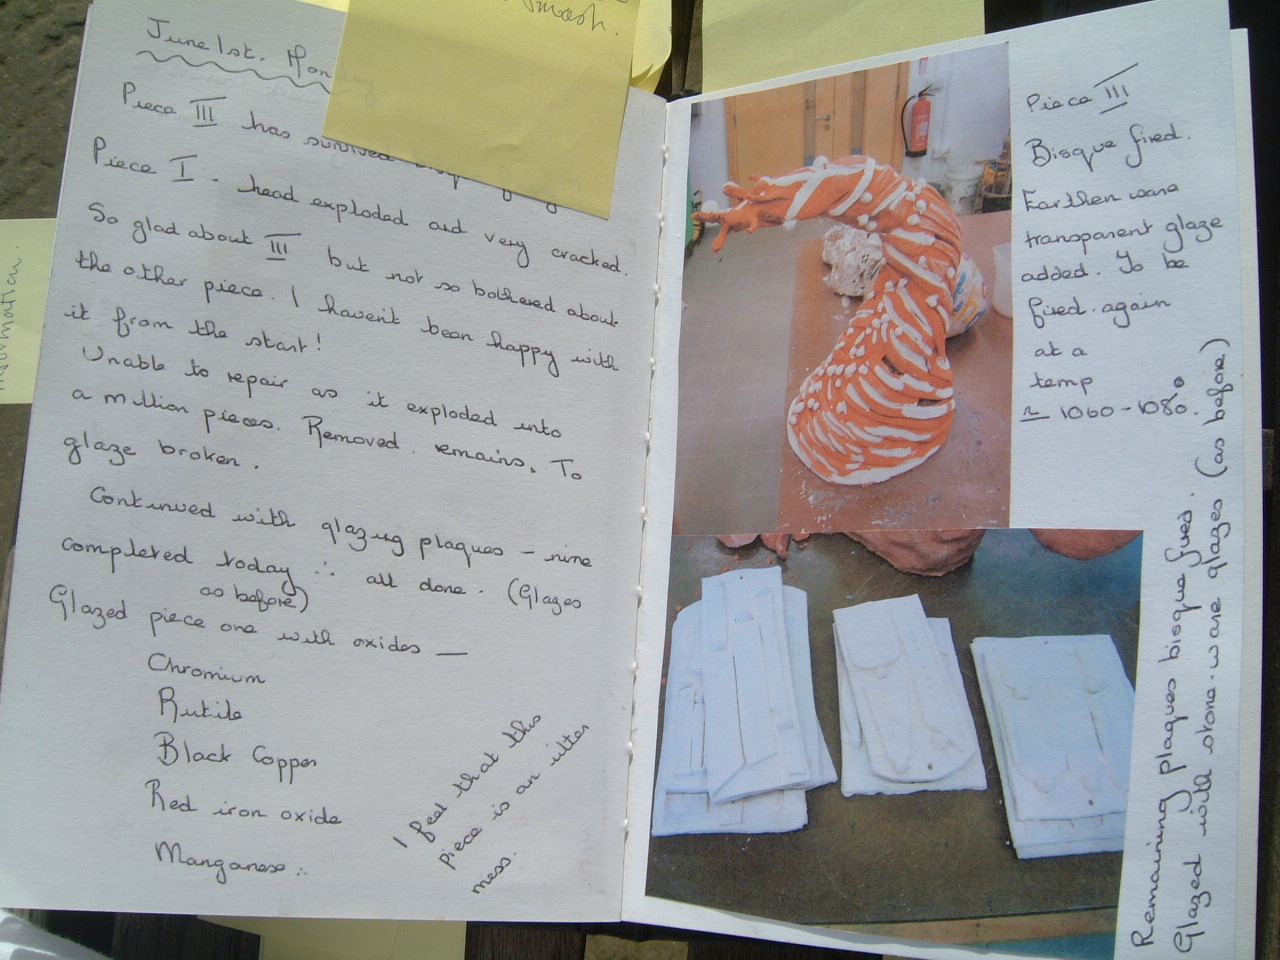 smash.
June 1st. Mon
Piece III has survived
Piece I - head exploded and very cracked.
So glad about III but not so bothered about
the other piece. I haven't been happy with
it from the start!
Unable to repair as it exploded into
a million pieces. Removed. remains. To
glaze broken.
Continued with glazing plaques - nine
completed today ∴ all done. (Glazes
as before)
Glazed piece one with oxides —
Chromium
Rutile
Black Copper
Red iron oxide
Manganese
I feel that this
piece is an utter
mess.
Piece III
Bisque fired.
Earthen ware
transparent glaze
added. To be
fired again
at a
temp
≃ 1060-1080°
Remaining plaques bisque fired.
Glazed with stone-ware glazes (as before)
information